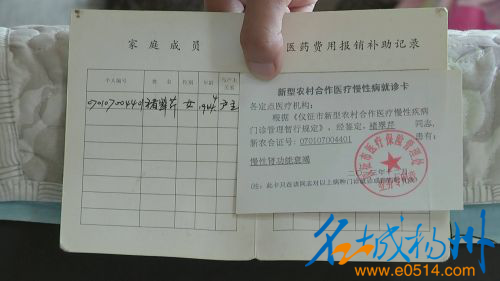 家庭成员
医药费用报销补助记录
个人编号 姓名 性别 年龄 与户主关系
070107004401 褚翠芹 女 1944 户主
新型农村合作医疗慢性病就诊卡
各定点医疗机构：
根据《仪征市新型农村合作医疗慢性疾病
门诊管理暂行规定》，经鉴定，褚翠芹 同志，
新农合证号：070107004401 患有：
慢性肾功能衰竭
名城扬州
www.e0514.com